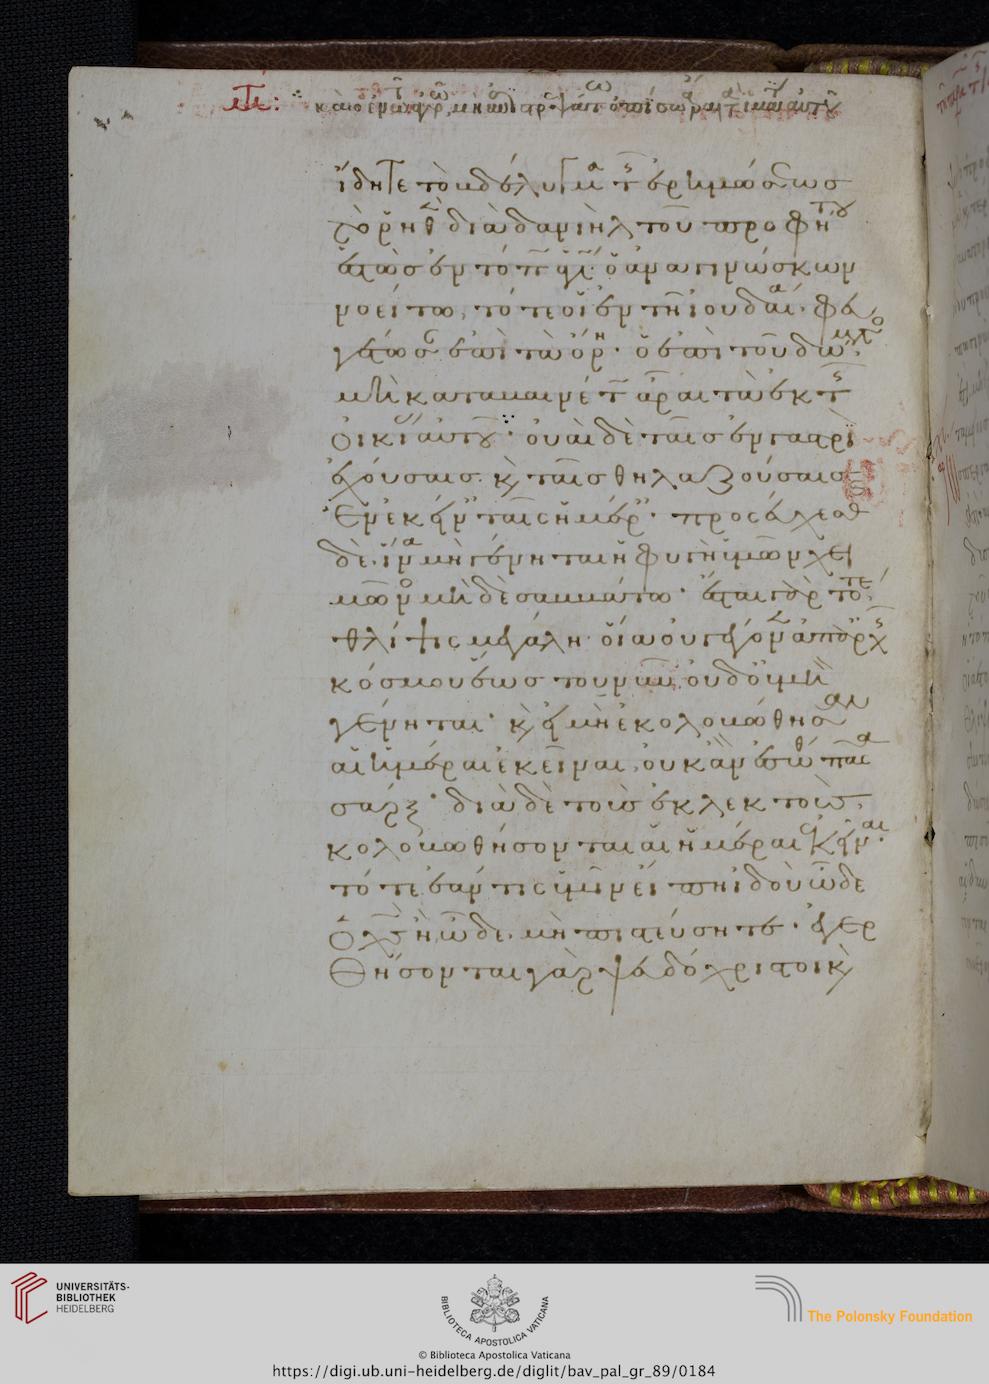 καὶ ὁ ἐν τῷ ἀγρῷ μὴ ἐπιστρεψάτω ὀπίσω ἆραι τὸ ἱμάτιον αὐτοῦ
ἴδητε τὸ βδέλυγμα τῆς ἐρημώσεως
τὸ ῥηθὲν διὰ δανιὴλ τοῦ προφήτου
ἑστὼς ἐν τόπῳ ἁγίῳ· ὁ ἀναγινώσκων
νοείτω, τότε οἱ ἐν τῇ ἰουδαίᾳ· φευ
γέτωσαν ἐπὶ τὰ ὄρη· ὁ ἐπὶ τοῦ δώματος
μὴ καταβαινέτω ἆραι τὰ ἐκ τῆς
οἰκίας αὐτοῦ· οὐαὶ δὲ ταῖς ἐν γαστρὶ
ἐχούσαις καὶ ταῖς θηλαζούσαις
ἐν ἐκείναις ταῖς ἡμέραις· προσεύχεσθε
δὲ ἵνα μὴ γένηται ἡ φυγὴ ὑμῶν χει
μῶνος μηδὲ σαββάτω· ἔσται γὰρ τότε
θλίψις μεγάλη· οἵα οὐ γέγονεν ἀπ᾽ ἀρχῆς
κόσμου ἕως τοῦ νῦν οὐδ᾽ οὐ μὴ
γένηται· καὶ εἰ μὴ ἐκολοβώθησαν
αἱ ἡμέραι ἐκεῖναι, οὐκ ἂν ἐσώθη πᾶσα
σάρξ· διὰ δὲ τοὺς ἐκλεκτοὺς,
κολοβωθήσονται αἱ ἡμέραι ἐκεῖναι·
τότε ἐάν τις ὑμῖν εἴπῃ ἰδοὺ ὧδε
ὁ χς ἢ ὧδε, μὴ πιστεύσητε· ἐγερ
θήσονται γὰρ ψευδόχριστοι καὶ
UNIVERSITÄTS-
BIBLIOTHEK
HEIDELBERG
BIBLIOTECA APOSTOLICA VATICANA
The Polonsky Foundation
© Biblioteca Apostolica Vaticana
https://digi.ub.uni-heidelberg.de/diglit/bav_pal_gr_89/0184